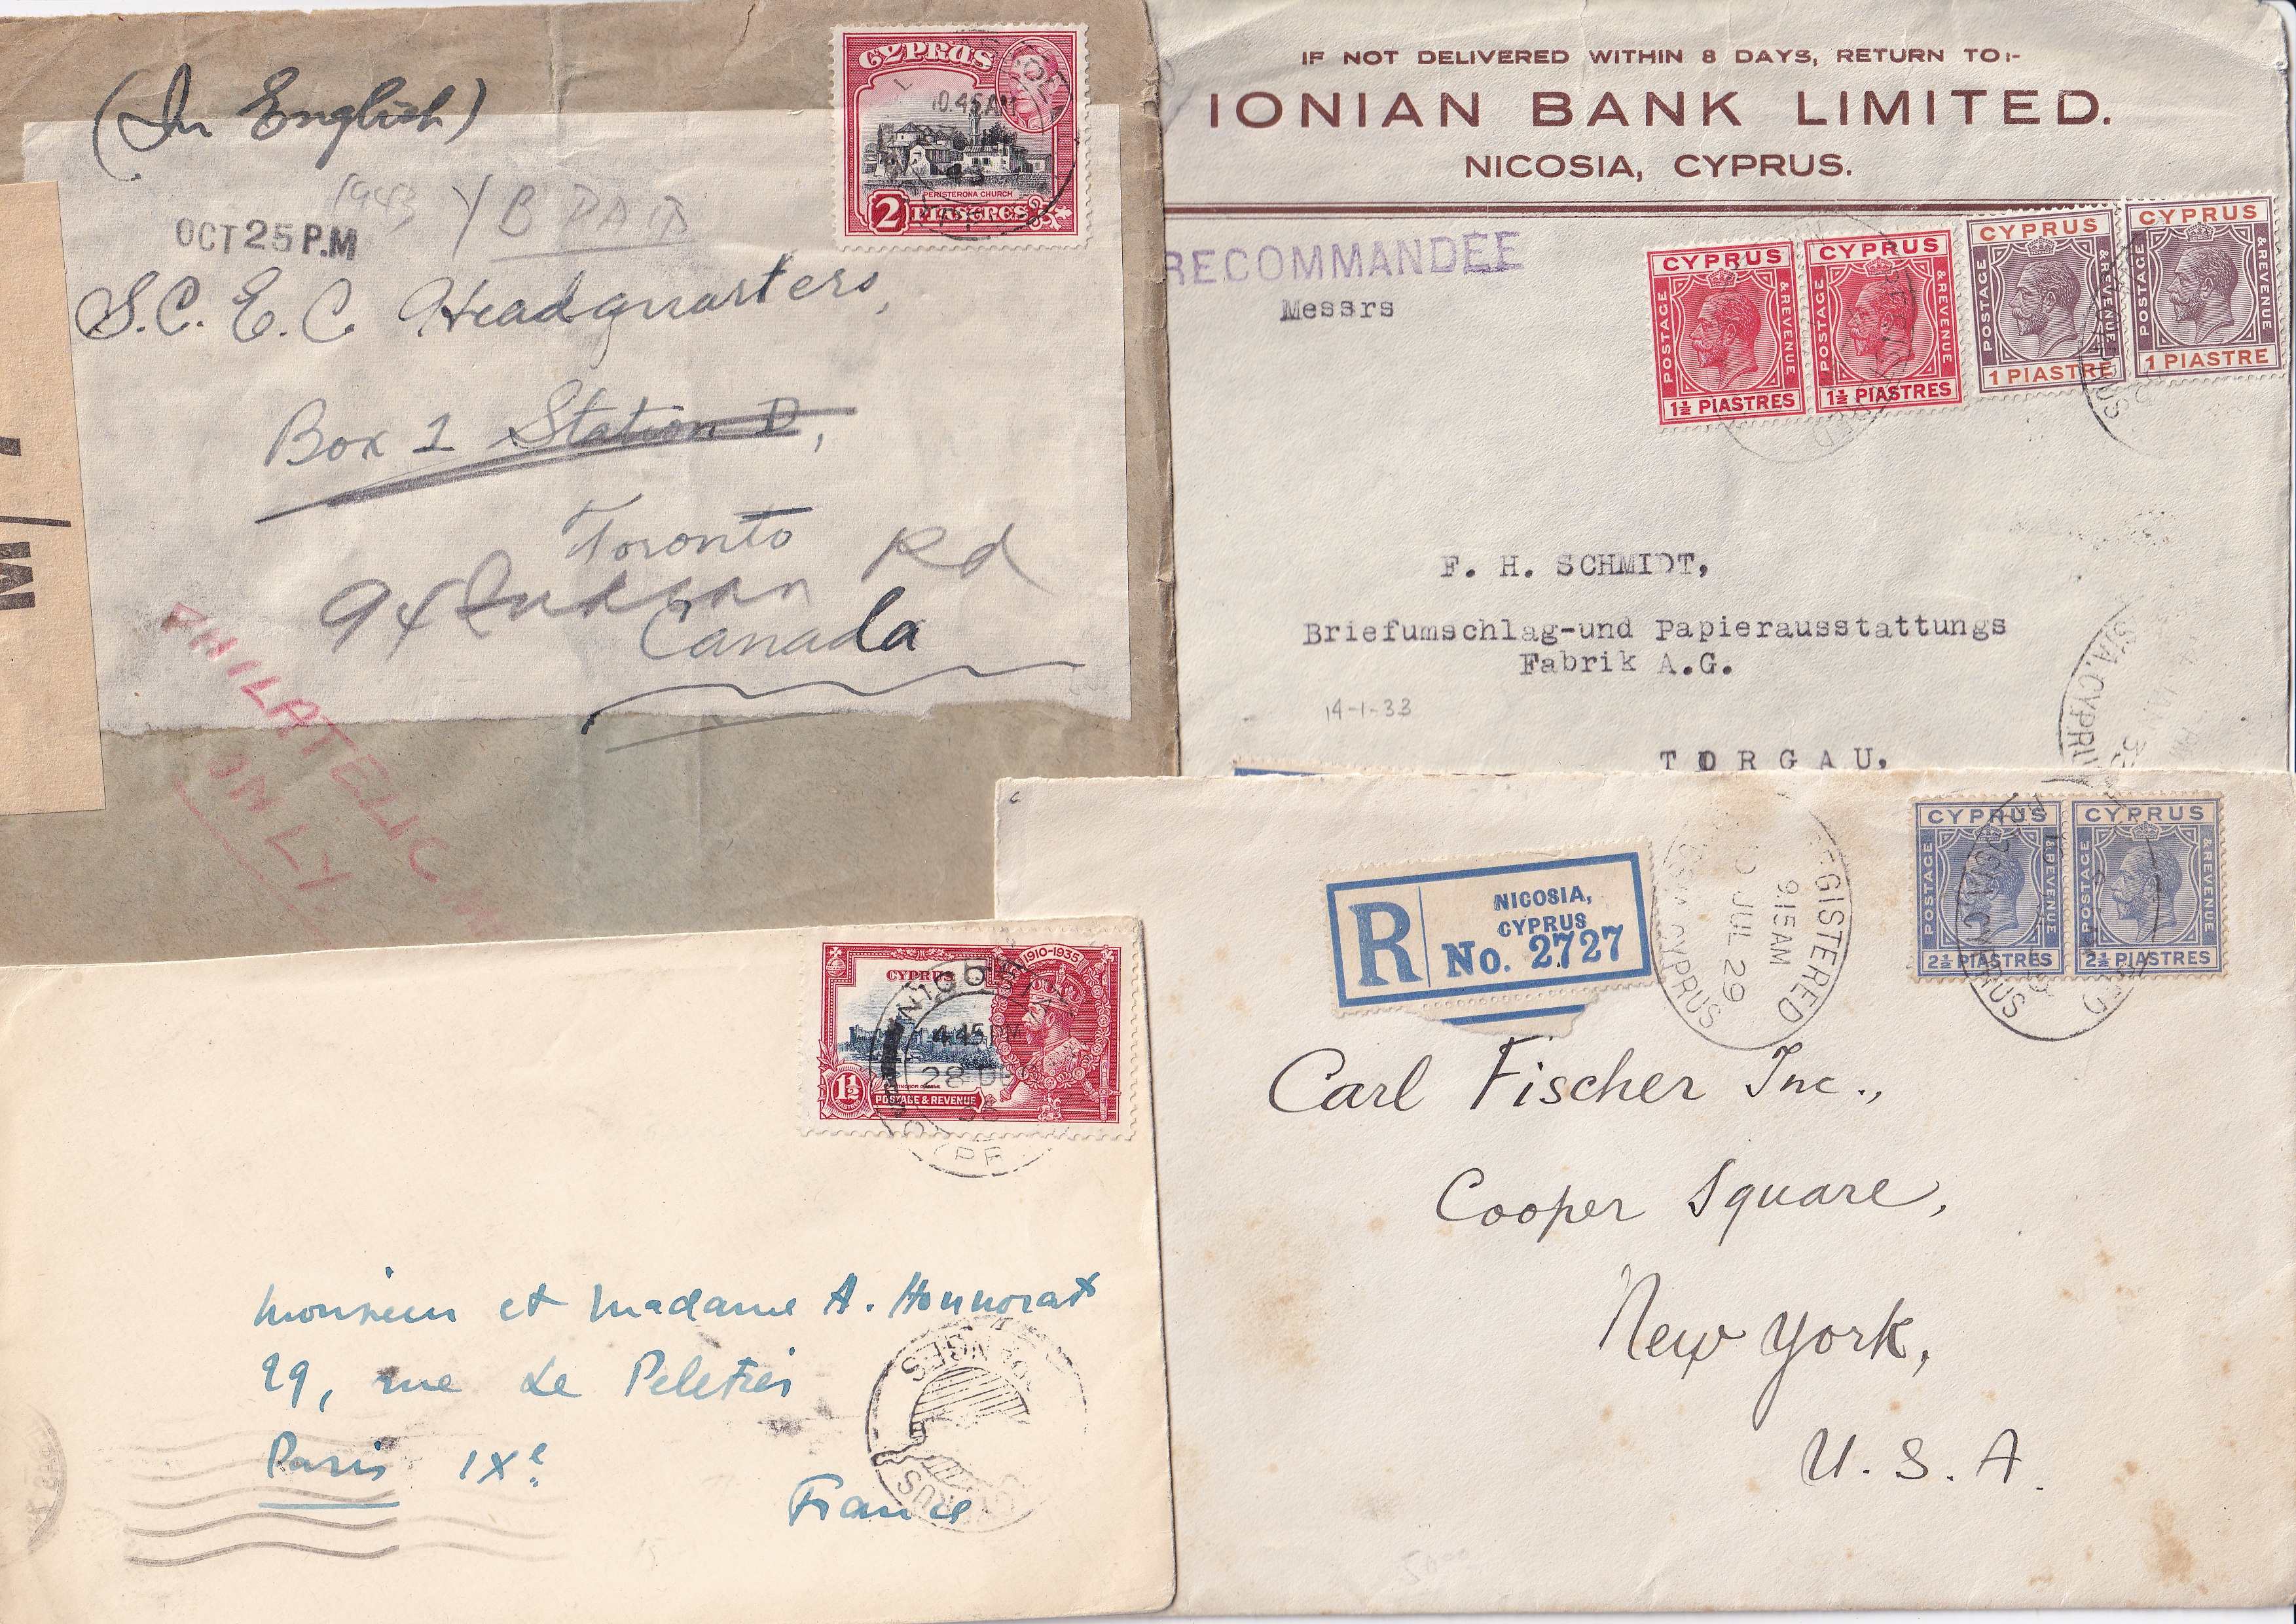 (In English)
OCT 25 P.M
1943
S.C.E.C. Headquarters,
Box 1 Station D,
Toronto
94 Indian Rd
Canada
PHILATELIC
ONLY.
M/
CYPRUS
10.45 AM
43
PERISTERONA CHURCH
2 PIASTRES
IF NOT DELIVERED WITHIN 8 DAYS, RETURN TO:-
IONIAN BANK LIMITED.
NICOSIA, CYPRUS.
RECOMMANDÉE
Messrs
CYPRUS
POSTAGE & REVENUE
1½ PIASTRES
CYPRUS
POSTAGE & REVENUE
1½ PIASTRES
CYPRUS
POSTAGE & REVENUE
1 PIASTRE
CYPRUS
POSTAGE & REVENUE
1 PIASTRE
F. H. SCHMIDT,
Briefumschlag-und Papierausstattungs
Fabrik A.G.
14-1-33
TORGAU.
CYPRUS
1910-1935
NICOSIA
4.45 PM
28 DE
WINDSOR CASTLE
1½
POSTAGE & REVENUE
Monsieur et Madame A. Honnorat
29, rue Le Peletier
Paris IXe.
France
ORANGES
CYPRUS
R NICOSIA,
CYPRUS
No. 2727
REGISTERED
9.15 AM
JUL 29
CYPRUS
CYPRUS
POSTAGE & REVENUE
2½ PIASTRES
CYPRUS
POSTAGE & REVENUE
2½ PIASTRES
Carl Fischer Inc.,
Cooper Square,
New York,
U.S.A.